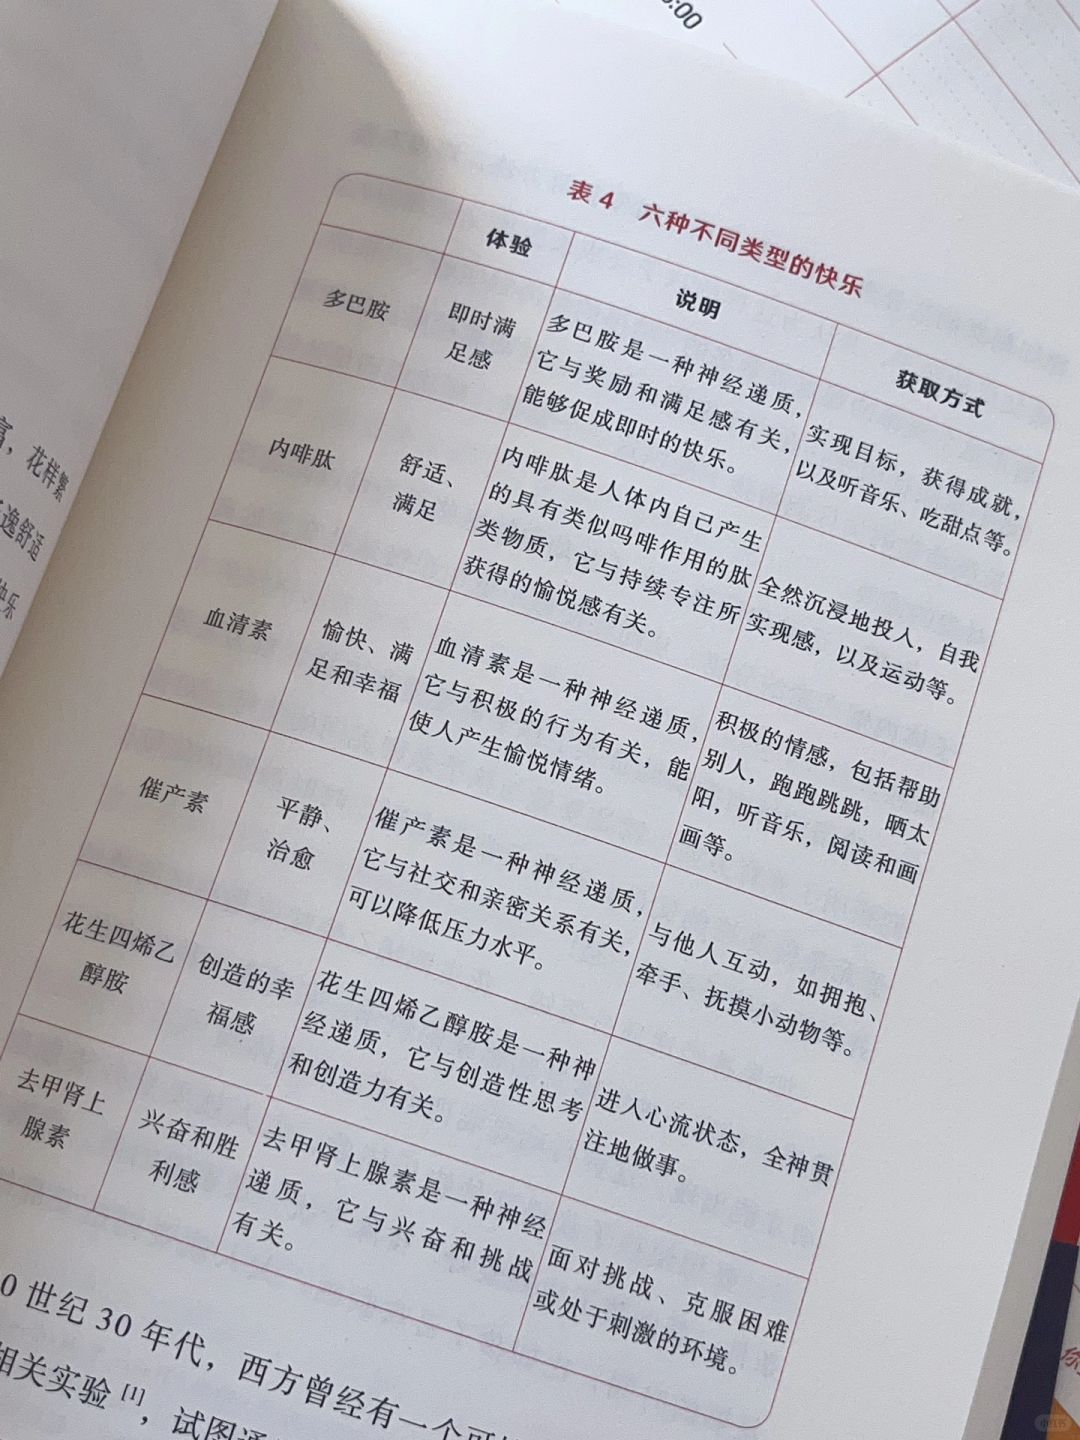 :00
表 4 六种不同类型的快乐
体验
说明
获取方式
多巴胺
即时满
足感
多巴胺是一种神经递质，
它与奖励和满足感有关，
能够促成即时的快乐。
实现目标，获得成就，
以及听音乐、吃甜点等。
内啡肽
舒适、
满足
内啡肽是人体内自己产生
的具有类似吗啡作用的肽
类物质，它与持续专注所
获得的愉悦感有关。
全然沉浸地投入，自我
实现感，以及运动等。
血清素
愉快、满
足和幸福
血清素是一种神经递质，
它与积极的行为有关，能
使人产生愉悦情绪。
积极的情感，包括帮助
别人，跑跑跳跳，晒太
阳，听音乐，阅读和画
画等。
催产素
平静、
治愈
催产素是一种神经递质，
它与社交和亲密关系有关，
可以降低压力水平。
与他人互动，如拥抱、
牵手、抚摸小动物等。
花生四烯乙
醇胺
创造的幸
福感
花生四烯乙醇胺是一种神
经递质，它与创造性思考
和创造力有关。
进入心流状态，全神贯
注地做事。
去甲肾上
腺素
兴奋和胜
利感
去甲肾上腺素是一种神经
递质，它与兴奋和挑战
有关。
面对挑战、克服困难
或处于刺激的环境。
0 世纪 30 年代，西方曾经有一个
相关实验 [1]，试图通
，花样繁
逸舒适
快乐
你
小红书